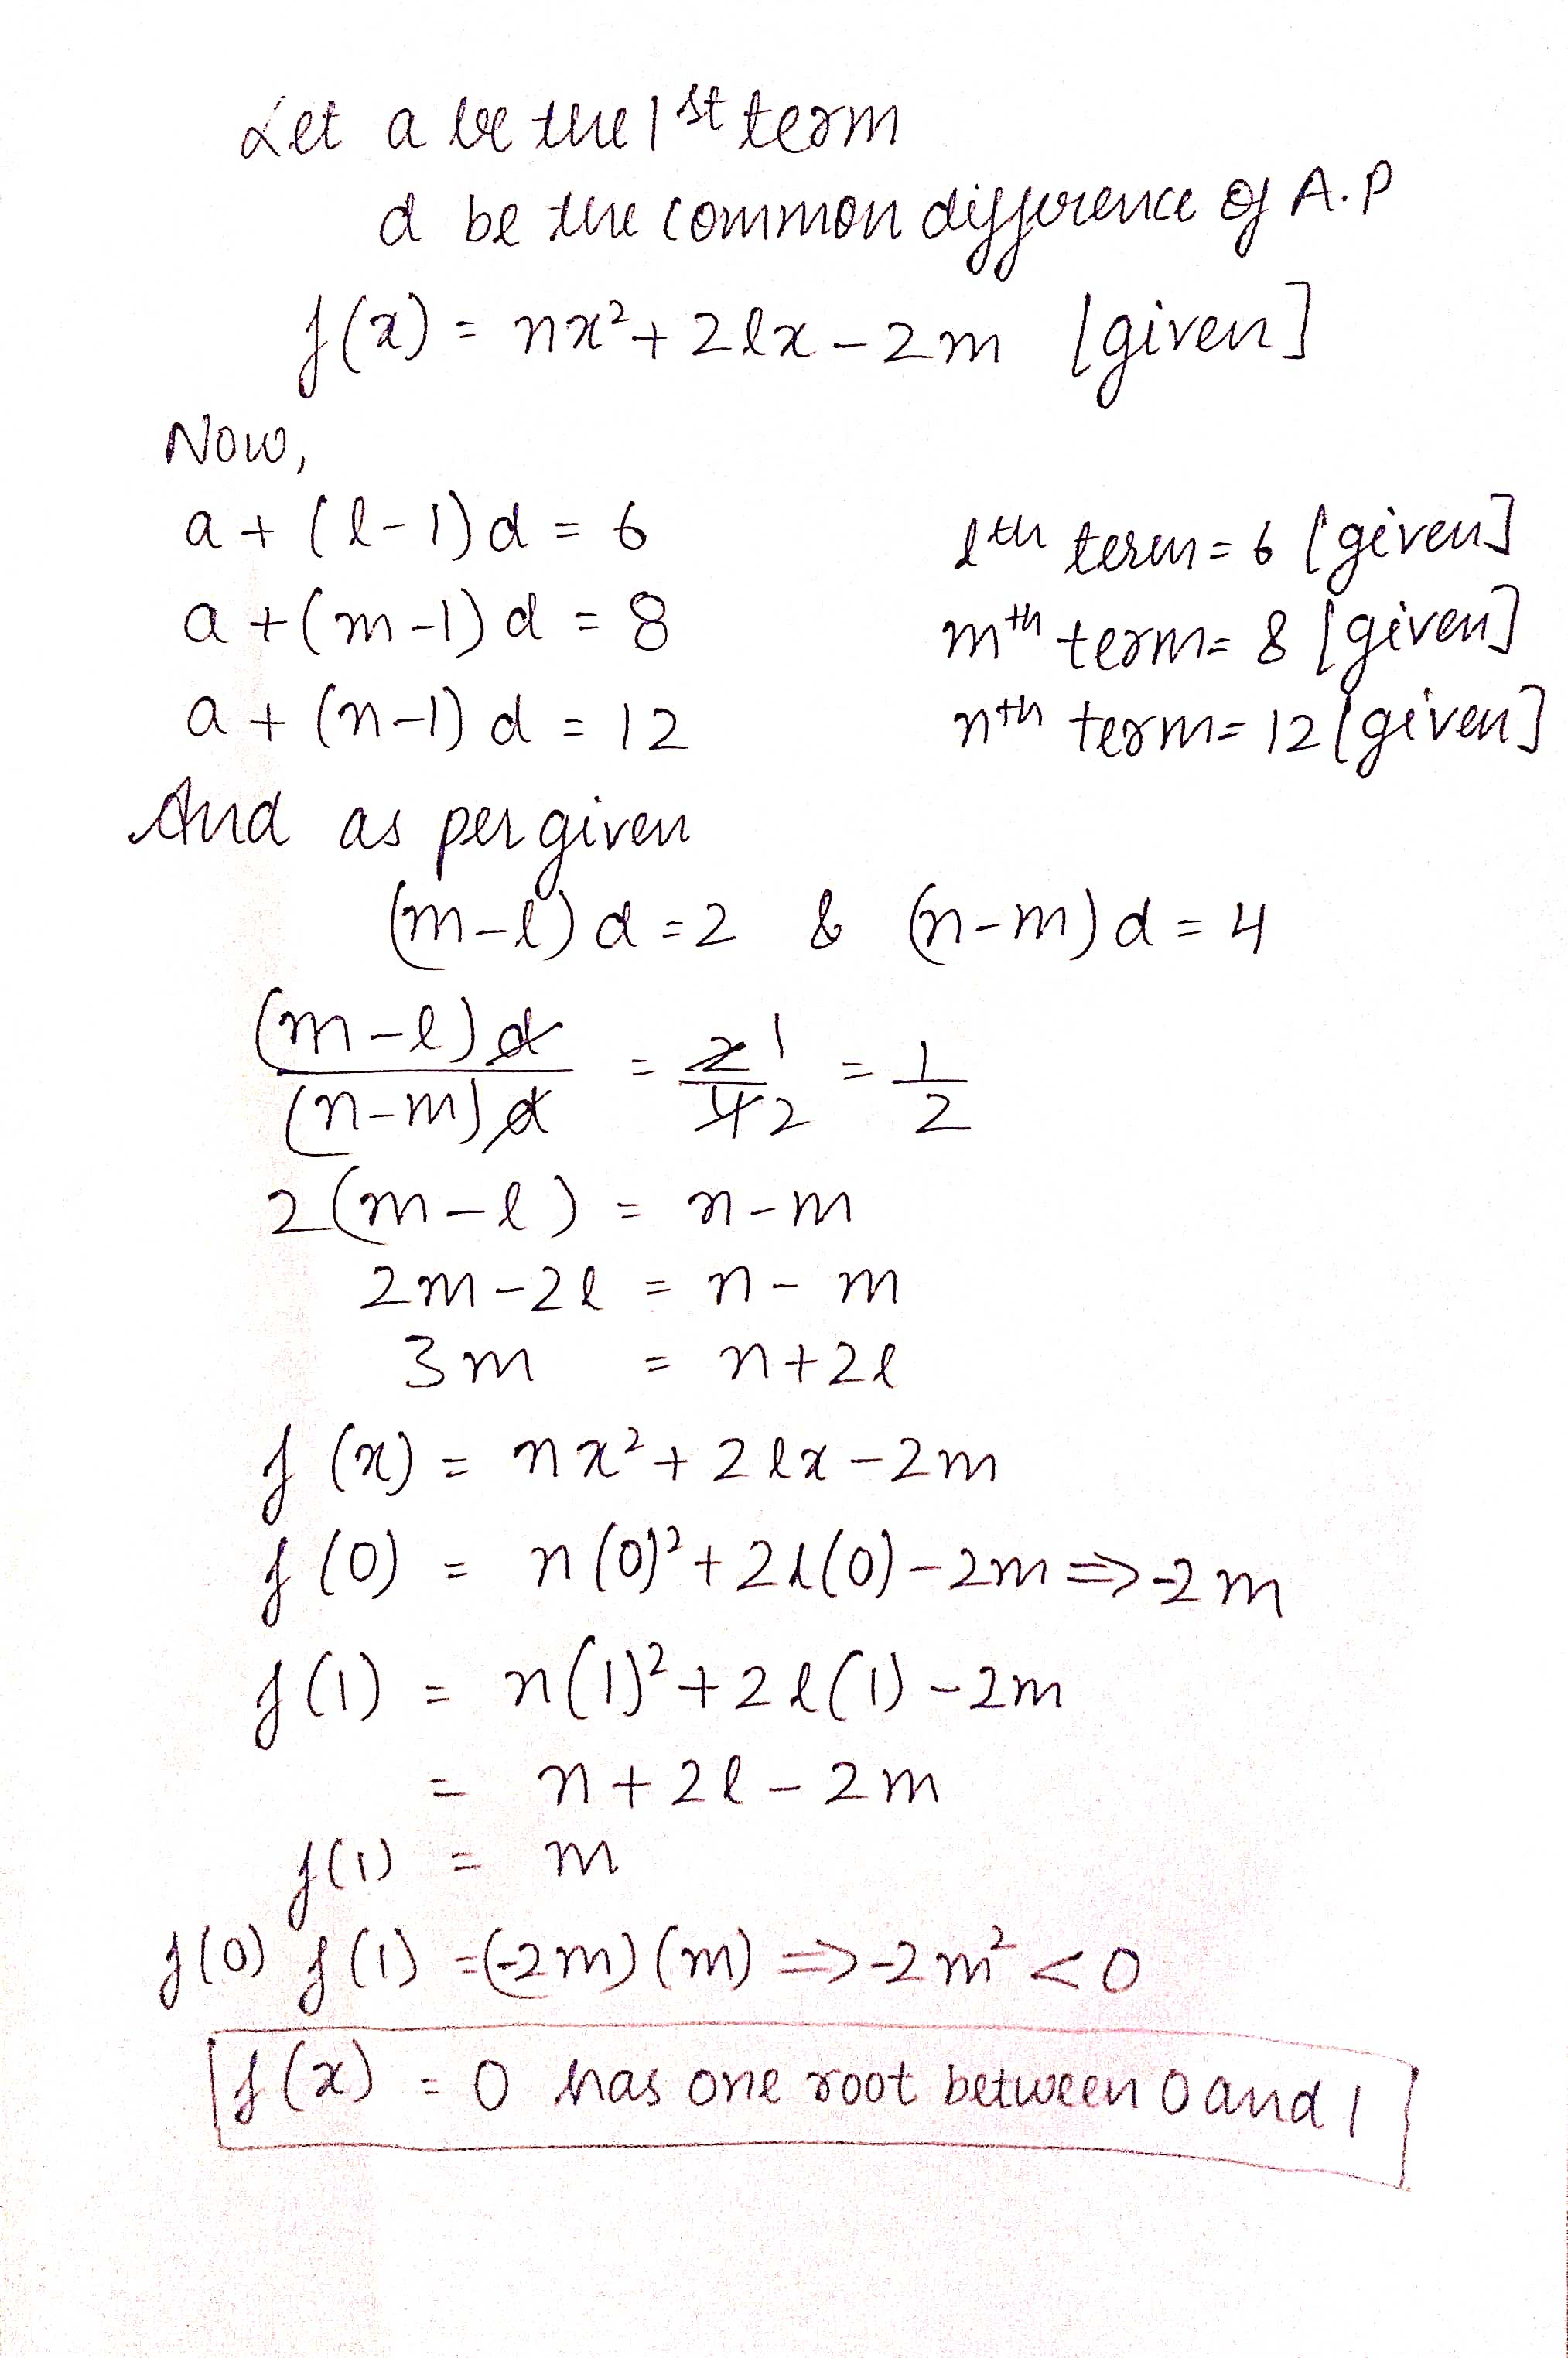 Let a be the 1st term
d be the common difference of A.P
f(x) = nx² + 2lx - 2m [given]
Now,
a + (l-1)d = 6 lth term = 6 [given]
a + (m-1)d = 8 mth term = 8 [given]
a + (n-1)d = 12 nth term = 12 [given]
And as per given
(m-l)d = 2 & (n-m)d = 4
(m-l)d / (n-m)d = 2 1 / 4 2 = 1/2
2(m-l) = n-m
2m-2l = n-m
3m = n+2l
f(x) = nx² + 2lx - 2m
f(0) = n(0)² + 2l(0) - 2m => -2m
f(1) = n(1)² + 2l(1) - 2m
= n + 2l - 2m
f(1) = m
f(0) f(1) = (-2m)(m) => -2m² < 0
f(x) = 0 has one root between 0 and 1